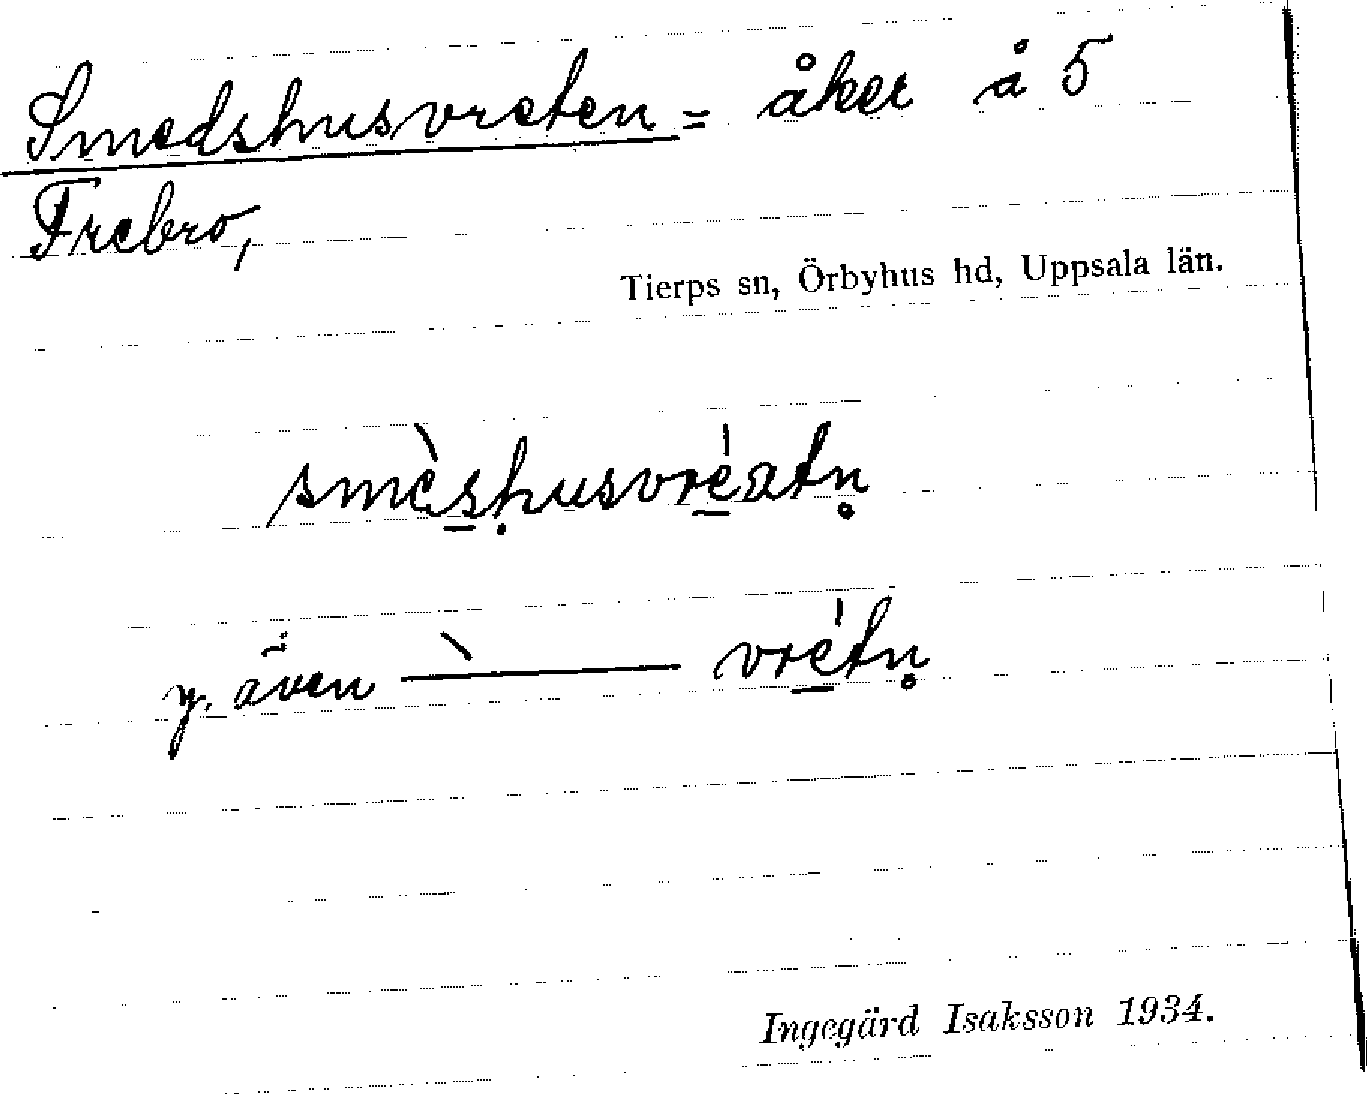 Smedshusvreten = åker å 5
Frebro,
Tierps sn, Örbyhus hd, Uppsala län.
smè̀s̠ḥusvré̠atn̥
y. även ˋ——— vré̠tn̥
Ingegärd Isaksson 1934.